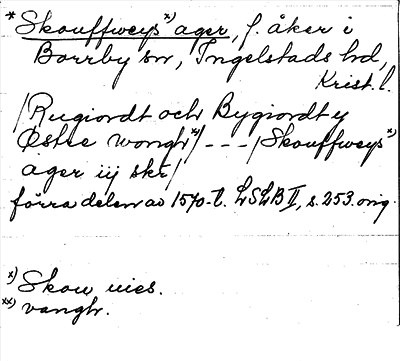 * Skouffweys*) ager, f. åker i
Borrby sn, Ingelstads hd,
Krist. l.
/Rugiordt och Bygiordt y
Østre wongh*)/ - - - /Skouffweys*)
ager iij skr/
förra delen av 1570-t. LSLB II, s. 253. orig.
*) Skow uies.
**) vangh.